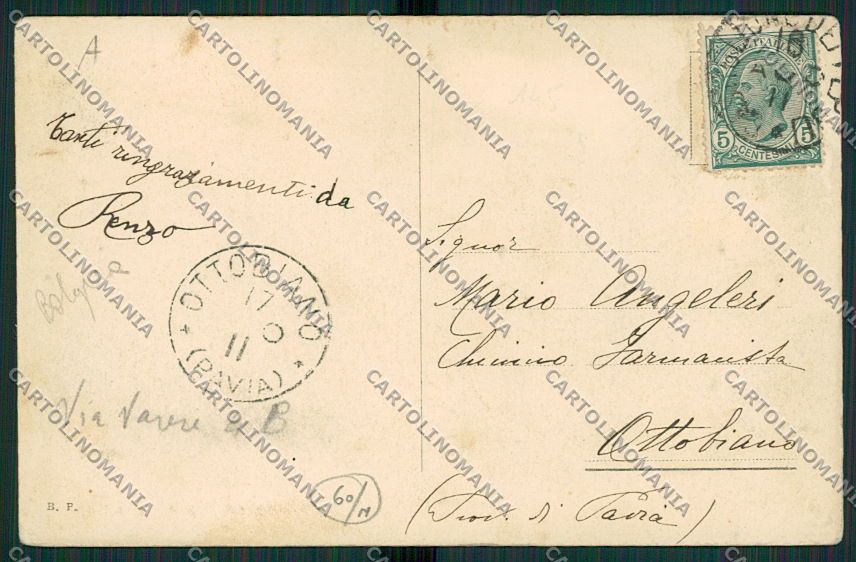 A
Tanti ringraziamenti da
Renzo
Bologna
OTTOBIANO
17
O
11
(PAVIA)
Via
B
B. P.
60/
POSTE ITALIANE
5 CENTESIMI 5
Signor
Mario Angeleri
Chimico Farmacista
Ottobiano
(Prov. di Pavia)
CARTOLINOMANIA